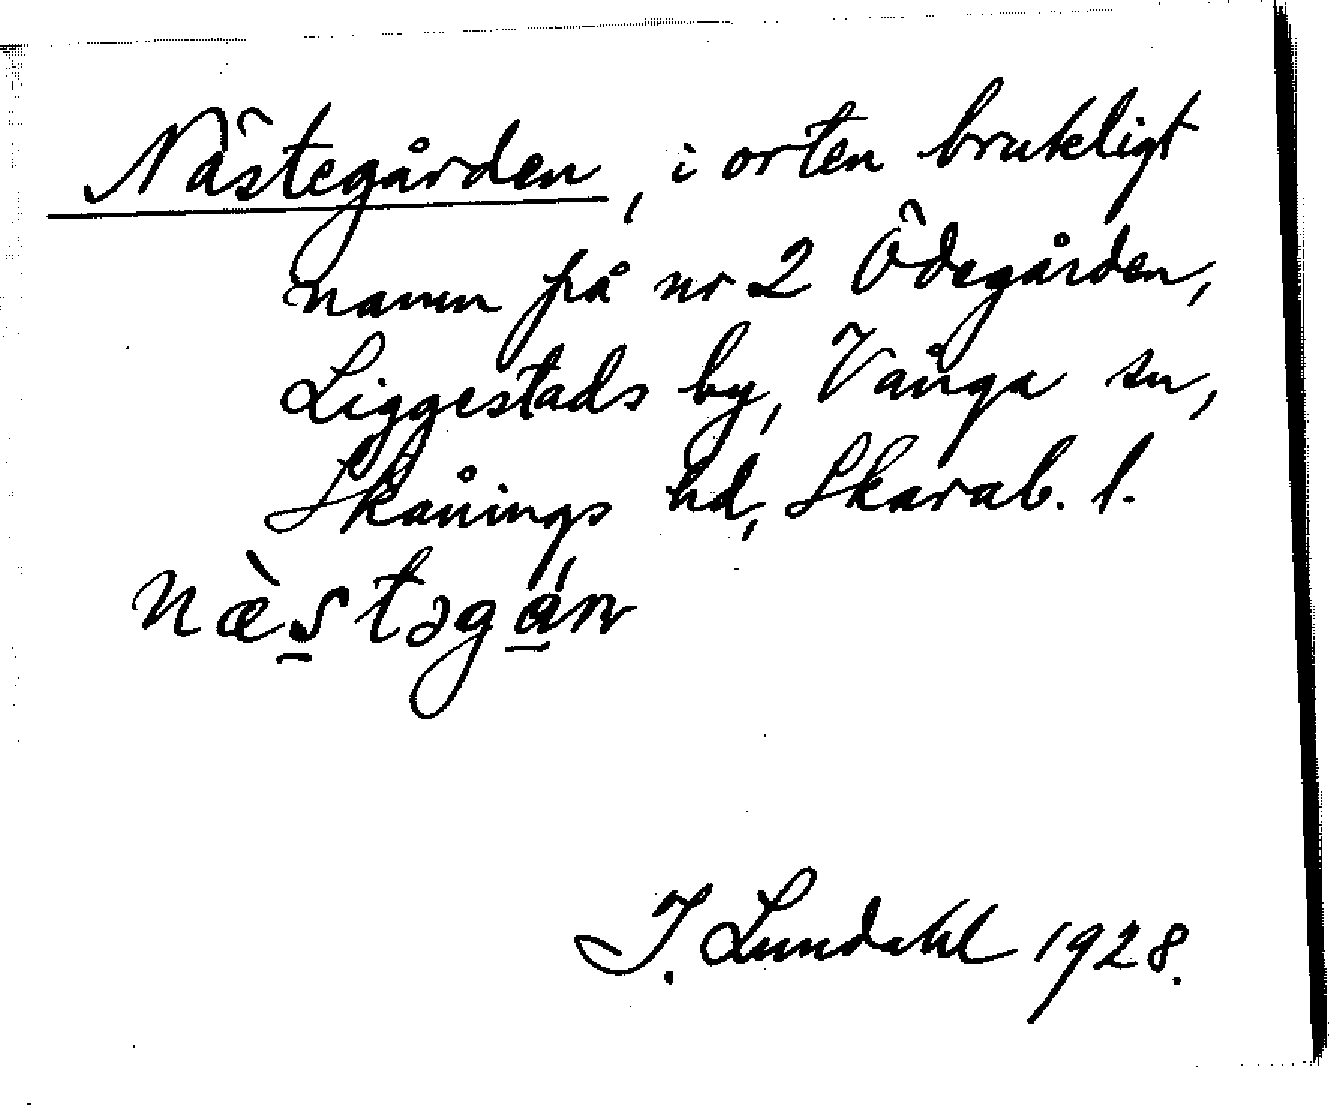 Nästegården, i orten brukligt
namn på nr 2 Ödegården,
Liggestads by, Vånga sn,
Skånings hd, Skarab. l.
næ̀s̲təgá̲rn
I. Lundahl 1928.